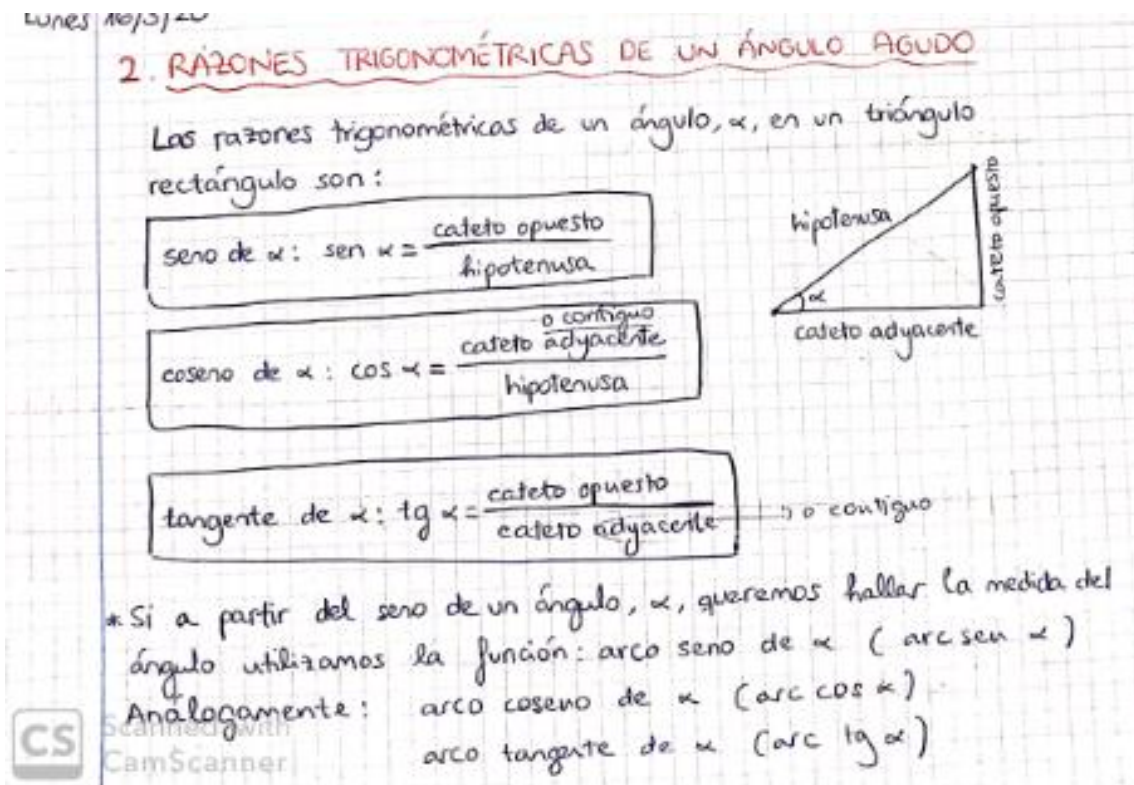 Lunes 16/3/20
2. RAZONES TRIGONOMÉTRICAS DE UN ÁNGULO AGUDO
Las razones trigonométricas de un ángulo, α, en un triángulo
rectángulo son:
seno de α: sen α = cateto opuesto
hipotenusa
hipotenusa
cateto opuesto
α
cateto adyacente
o contiguo
coseno de α: cos α = cateto adyacente
hipotenusa
tangente de α: tg α = cateto opuesto
cateto adyacente → o contiguo
* Si a partir del seno de un ángulo, α, queremos hallar la medida del
ángulo utilizamos la función: arco seno de α (arc sen α)
Análogamente: arco coseno de α (arc cos α)
arco tangente de α (arc tg α)
CS Scanned with
CamScanner